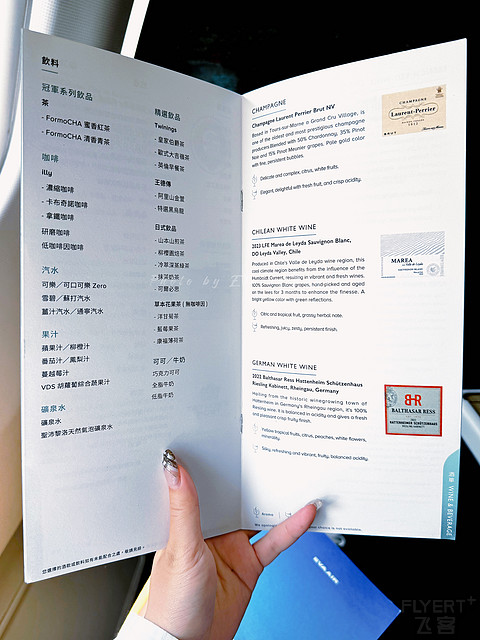 飲料
冠軍系列飲品
茶
- FormoCHA 蜜香紅茶
- FormoCHA 清香青茶
咖啡
illy
- 濃縮咖啡
- 卡布奇諾咖啡
- 拿鐵咖啡
研磨咖啡
低咖啡因咖啡
汽水
可樂／可口可樂 Zero
雪碧／蘇打汽水
薑汁汽水／通寧汽水
果汁
蘋果汁／柳橙汁
番茄汁／鳳梨汁
蔓越莓汁
VDS 胡蘿蔔綜合蔬果汁
礦泉水
礦泉水
聖沛黎洛天然氣泡礦泉水
精選飲品
Twinings
- 皇家伯爵茶
- 歐式大吉嶺茶
- 英倫早餐茶
王德傳
- 阿里山金萱
- 特選黑烏龍
日式飲品
- 山本山煎茶
- 柳櫻園焙茶
- 冷萃深蒸綠茶
- 抹茶奶茶
- 可爾必思
草本花果茶 ( 無咖啡因 )
- 洋甘菊茶
- 藍莓果茶
- 康福薄荷茶
可可／牛奶
巧克力可可
全脂牛奶
低脂牛奶
您選擇的酒款或飲料如有未能配合之處，敬請見諒。
CHAMPAGNE
Champagne Laurent Perrier Brut NV
Based in Tours-sur-Marne a Grand Cru Village, is
one of the oldest and most prestigious champagne
producers.Blended with 50% Chardonnay, 35% Pinot
Noir and 15% Pinot Meunier grapes. Pale gold color
with fine, persistent bubbles.
Delicate and complex, citrus, white fruits.
Elegant, delightful with fresh fruit, and crisp acidity.
CHAMPAGNE
Laurent-Perrier
BRUT
CHILEAN WHITE WINE
2023 LFE Marea de Leyda Sauvignon Blanc,
DO Leyda Valley, Chile
Produced in Chile's Valle de Leyda wine region, this
cool climate region benefits from the influence of the
Humboldt Current, resulting in vibrant and fresh wines.
100% Sauvignon Blanc grapes, hand-picked and aged
on the lees for 3 months to enhance the finesse. A
bright yellow color with green reflections.
Citric and tropical fruit, grassy herbal note.
Refreshing, juicy, zesty, persistent finish.
MAREA
GERMAN WHITE WINE
2022 Balthasar Ress Hattenheim Schützenhaus
Riesling Kabinett, Rheingau, Germany
Hailing from the historic winegrowing town of
Hattenheim in Germany's Rheingau region, it's 100%
Riesling wine. It is balanced in acidity and gives a fresh
and pleasant crisp fruity finish.
Yellow tropical fruits, citrus, peaches, white flowers,
minerality.
Silky, refreshing and vibrant, fruity, balanced acidity.
BR
BALTHASAR RESS
HATTENHEIM SCHÜTZENHAUS
WINE & BEVERAGE
EVA AIR
FLYERT+
飞客